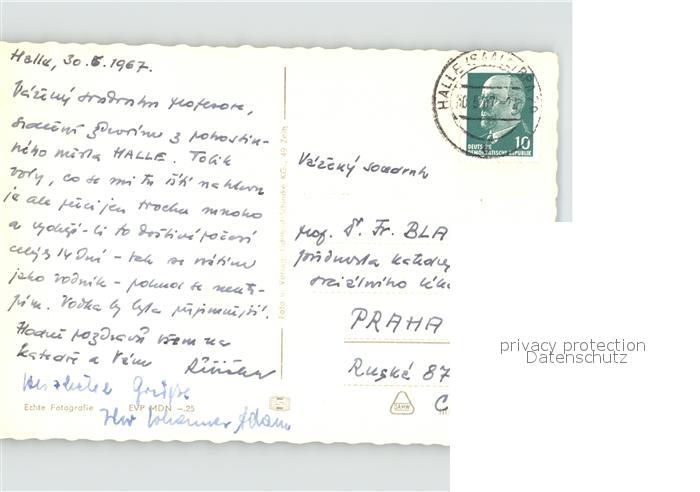 Halle, 30.5.1967.
Vážený soudruhu profesore,
srdečně zdravíme z pohostin-
ného města HALLE. Tolik
vody, co se mi tu
je ale přeci jen trochu mnoho
a to deštivé počasí
celých 14 dní - tak se vrátíme
jako vodník - pokud se neuto-
pím. Vodka by byla příjemnější.
Hodně pozdravů všem na
katedře a Vám
Herzliche Grüße
Ihr Johannes Adam
Echte Fotografie EVP MDN -.25
Foto u. Verlag
HALLE (SAALE)
DEUTSCHE
DEMOKRATISCHE REPUBLIK
10
Vážený soudruh
prof. Dr. Fr. BLA
přednosta katedry
sociálního léka
PRAHA
Ruská 87
privacy protection
Datenschutz